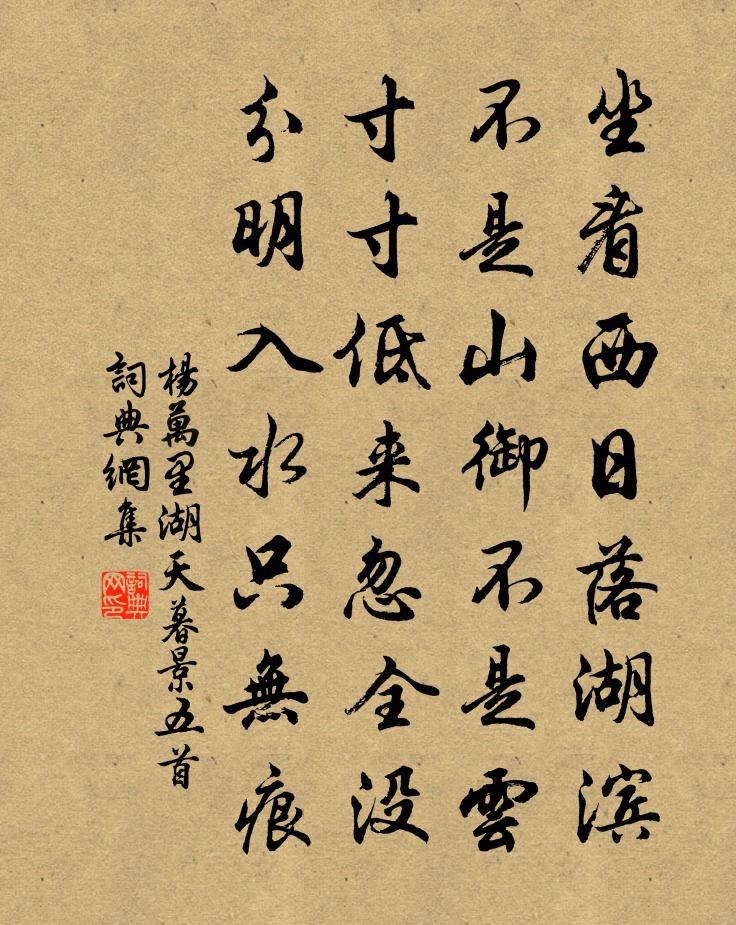 坐看西日落湖滨
不是山御不是雲
寸寸低来忽全没
分明入水只無痕
楊萬里湖天暮景五首
詞典網集
詞典网印